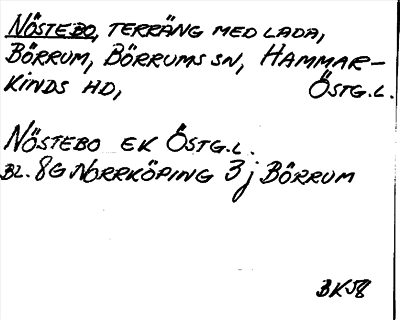 NÖSTEBO, TERRÄNG MED LADA,
BÖRRUM, BÖRRUMS SN, HAMMAR-
KINDS HD, ÖSTG.L.
NÖSTEBO EK ÖSTG.L.
BL. 8G NORRKÖPING 3j BÖRRUM
BK58